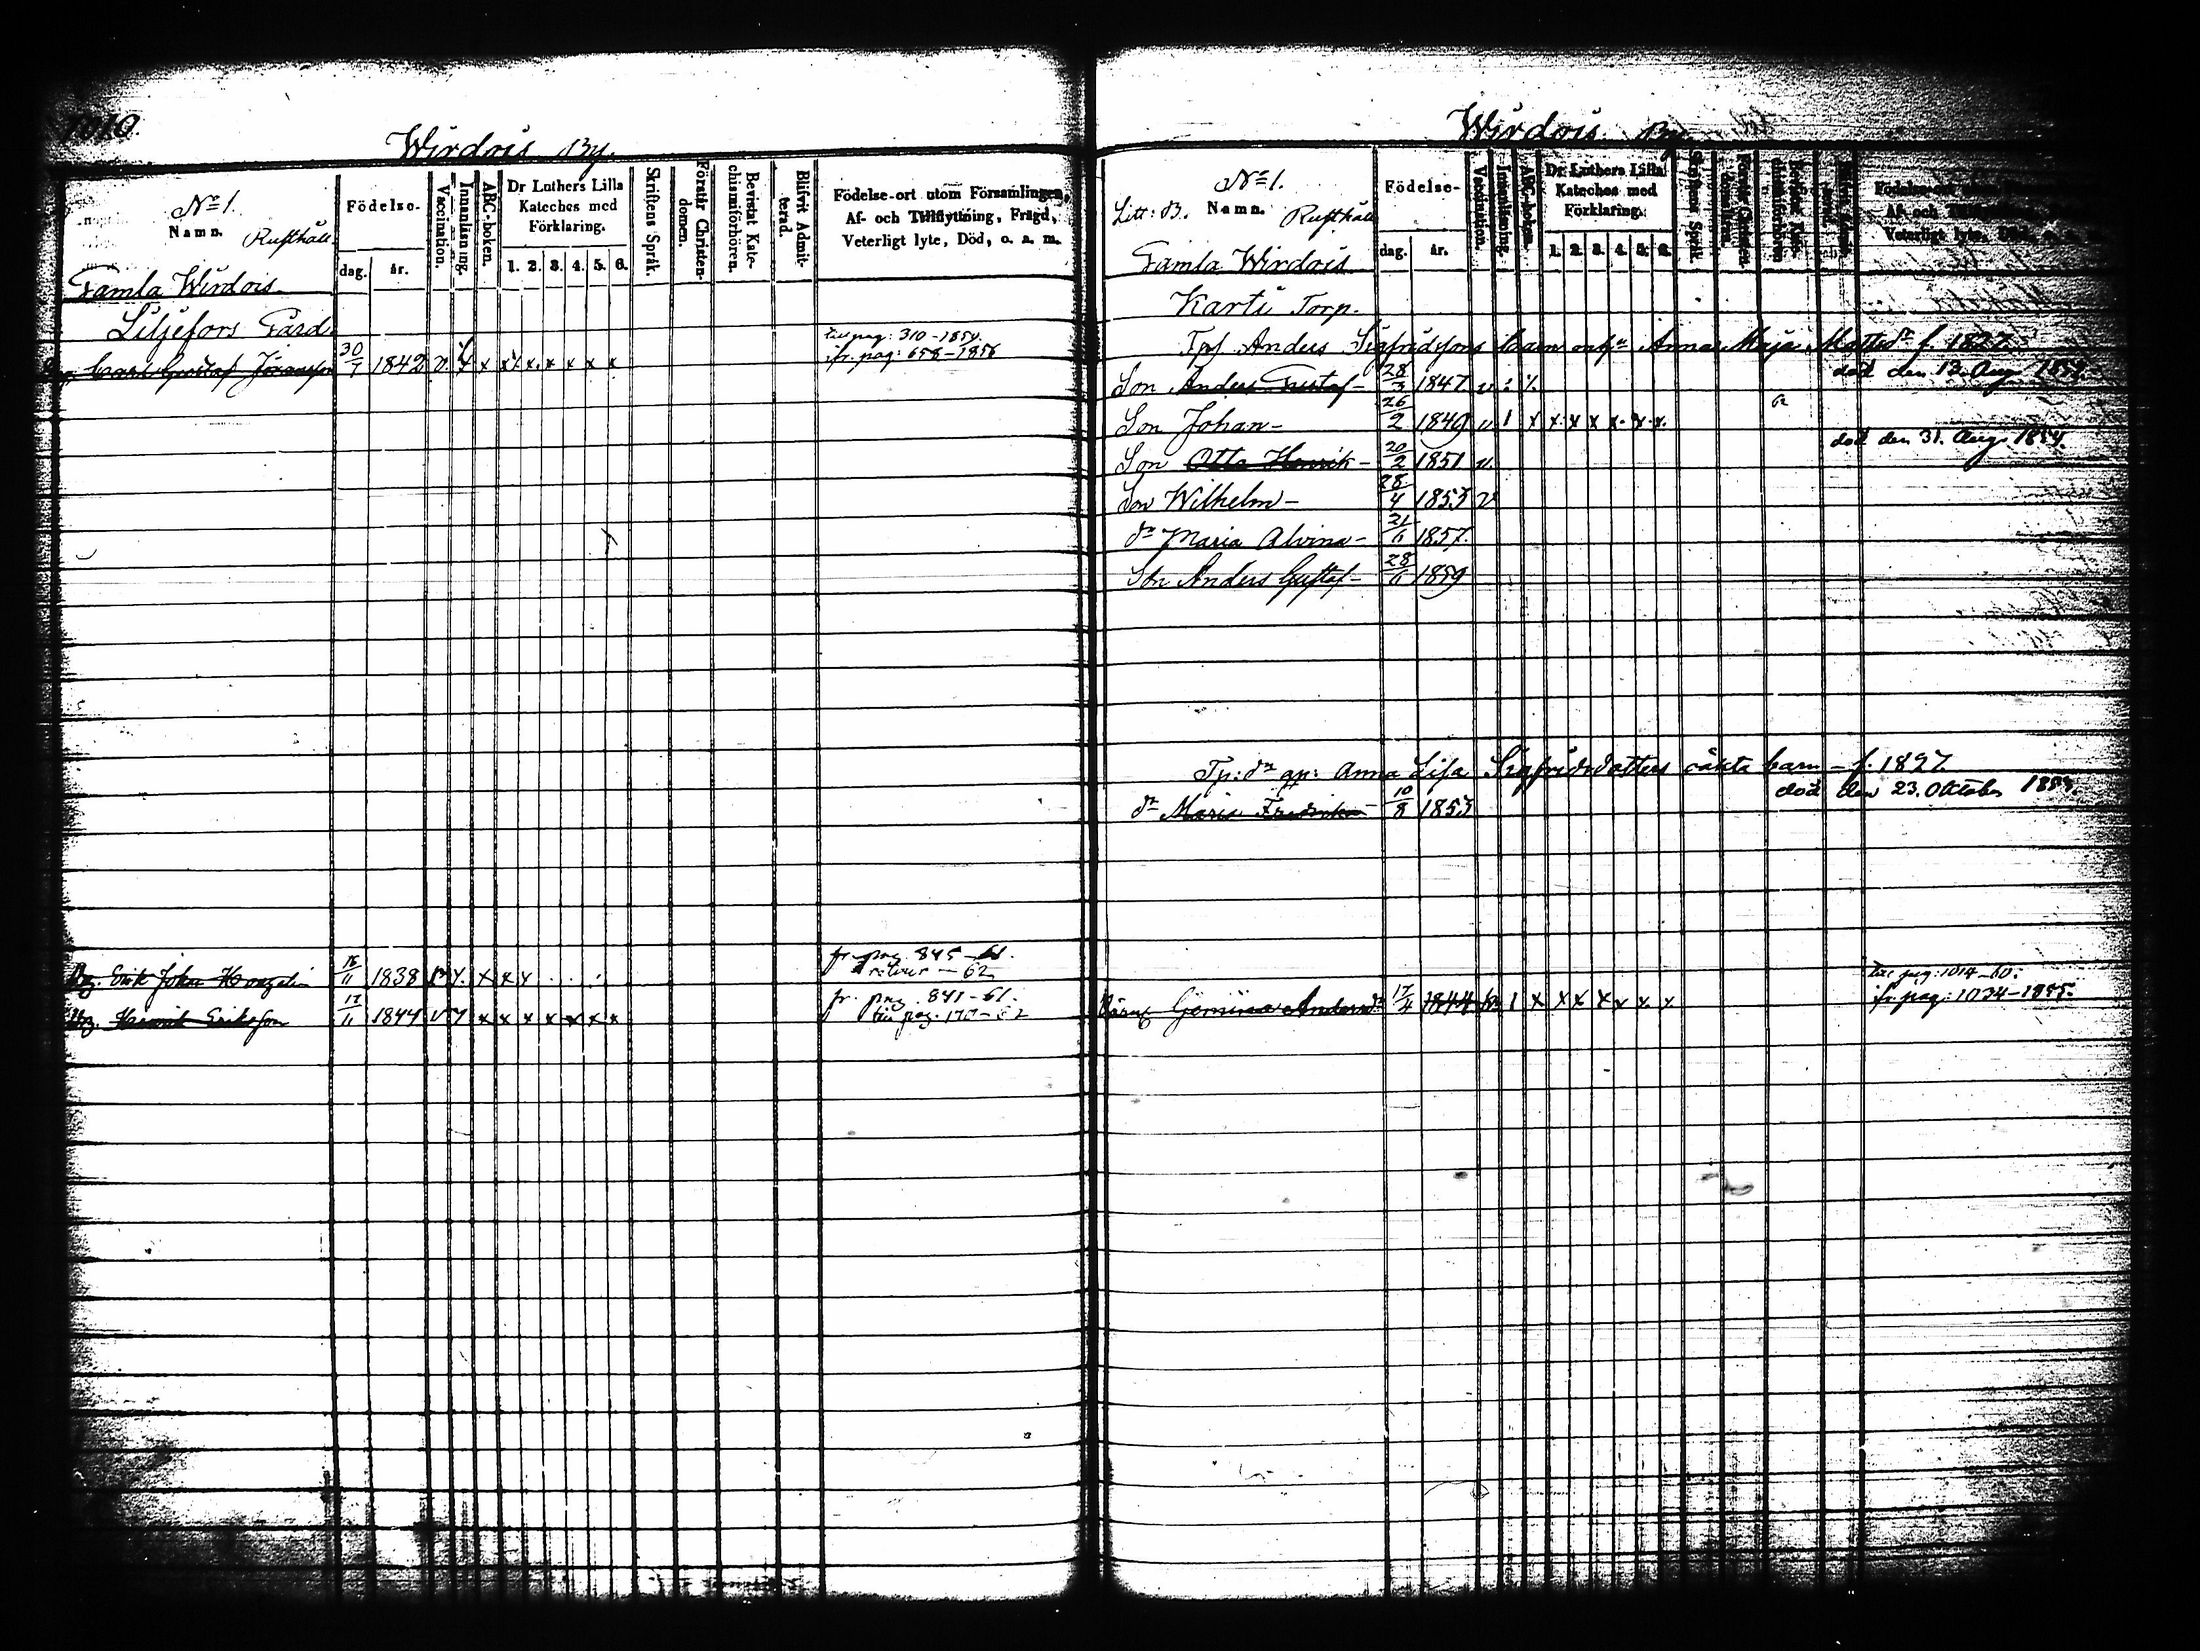 1010.
Wirdois By.
No 1.
Namn.
Rusthåll
Födelse-
dag.
år.
Vaccination.
Innanläsning.
ABC-boken.
Dr Luthers Lilla
Kateches med
Förklaring.
1. 2. 3. 4. 5. 6.
Skriftens Språk.
Förstår Christen-
domen.
Bevistat Kate-
chismiförhören.
Blifvit Admit-
terad.
Födelse-ort utom Församlingen,
Af- och Tillflyttning, Frägd,
Veterligt lyte, Död, o. a. m.
Gamla Wirdois
Liljefors Gård
till pag: 310-1859.
Carl Gustaf Johansson 30/7 1842 v. x x x x x x x x ifr. pag: 658-1856
fr. pag. 845-61.
Erik Johan 18/11 1838 x x x retour - 62
fr. pag. 841-61.
Henrik Eriksson 17/11 1844 v x x x x x x x till pag. 177-62
Wirdois By
No 1.
Litt: B. Namn. Rusthåll
Födelse-
dag. år.
Vaccination.
Innanläsning.
ABC-boken.
Dr Luthers Lilla
Kateches med
Förklaring.
1. 2. 3. 4. 5. 6.
Skriftens Språk
Födelse-ort
Af- och Tillflyttning,
Veterligt lyte, Död,
Gamla Wirdois
Karti Torp.
Tpf Anders Sigfridssons barn Anna Maja Mattsdr f. 1827
Son Anders Gustaf - 28/3 1847 v död den 13. Aug 1859.
Son Johan - 26/2 1849 v 1 x x x x x x x
Son Otto Henrik - 20/2 1851 v. död den 31. Aug. 1854.
Son Wilhelm - 28/4 1853 v
dr Maria Alvina - 21/6 1857.
Son Anders Gustaf - 28/6 1859
Tp: dr gp: Anna Lisa Sigfridsdotters oäkta barn - f. 1827.
dr Maria Fredrika 10/8 1853 död den 23. Oktober 1859.
till pag: 1014-60.
Andersdr 17/4 1844 1 x x x x x x x ifr. pag: 1034-1855.